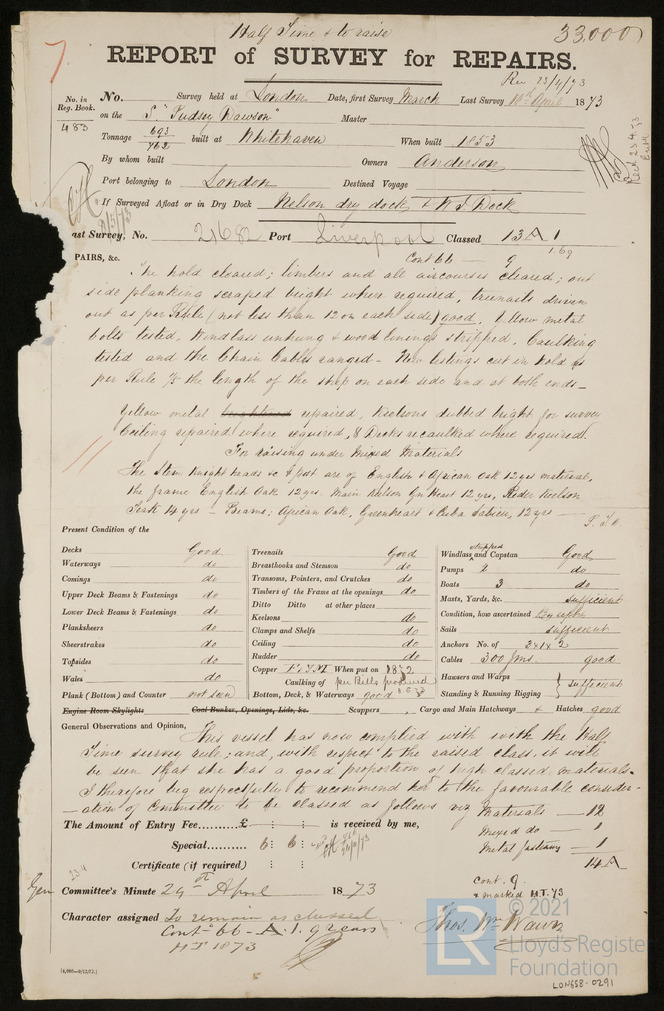 Half Time & to raise
33,000
7
REPORT of SURVEY for REPAIRS.
Rec 23/4/73
No. in Reg. Book.
483
No. Survey held at London Date, first Survey March Last Survey 18th April 1873
on the S. "Pudsey Dawson" Master
Tonnage 693/762 built at Whitehaven When built 1853
By whom built Owners Anderson
Port belonging to London Destined Voyage
If Surveyed Afloat or in Dry Dock Nelson dry dock & W I Dock
ast Survey, No. 21682 Port Liverpool Classed 13 A 1
Cont 66 — 9 1.69
PAIRS, &c.
The hold cleared; limbers and all aircourses cleared; out
side planking scraped bright where required, treenails driven
out as per Rule (not less than 12 on each side) good. Yellow metal
bolts tested, Windlass unhung & wood linings stripped. Caulking
tested and the Chain Cables ranged — New listings cut in hold as
per Rule ⅓ the length of the ship on each side and at both ends —
Yellow metal repaired, Keelsons dubbed bright for survey
Ceiling repaired where required, & Decks recaulked where required.
For raising under Mixed Materials
The Stem Knight heads &c & pdt are of English & African Oak 12 yrs material,
the frame English Oak 12 yrs. Main Kelson Gn Heart 12 yrs, Rider Keelson
Teak 14 yrs — Beams; African Oak, Greenheart & Cuba Sabicu, 12 yrs —
P.T.O.
Present Condition of the
Decks Good
Waterways do
Comings do
Upper Deck Beams & Fastenings do
Lower Deck Beams & Fastenings do
Planksheers do
Sheerstrakes do
Topsides do
Wales do
Plank (Bottom) and Counter not seen
Engine Room Skylights Coal Bunker, Openings, Lids, &c.
Treenails Good
Breasthooks and Stemson do
Transoms, Pointers, and Crutches do
Timbers of the Frame at the openings do
Ditto Ditto at other places
Keelsons do
Clamps and Shelfs do
Ceiling do
Rudder do
Copper F.&Y.M When put on 1872
Caulking of per Bills produced
Bottom, Deck, & Waterways good 1873
Scuppers , Cargo and Main Hatchways & Hatches good
stripped
Windlass and Capstan Good
Pumps 2 do
Boats 3 do
Masts, Yards, &c. sufficient
Condition, how ascertained By seeing
Sails sufficient
Anchors No. of 3 x 1 x 2
Cables 300 fms. good
Hawsers and Warps
Standing & Running Rigging } sufficient
General Observations and Opinion, This vessel has now complied with with the half
Time survey rule; and, with respect to the raised class, it will
be seen that she has a good proportion of high classed materials.
I therefore beg respectfully to recommend her to the favorable consider-
-ation of Committee to be classed as follows viz Materials — 12
Mixed do — 1
Metal fastening — 1
14 A
Cont. 9
& marked H.T. 73
The Amount of Entry Fee.......... £ : : is received by me,
Special............ 6 : 6 :
Certificate (if required) : :
Committee's Minute 29th April 1873
Character assigned To remain as classed
Cont 66 - A.1. 9 years
HT 1873
Thos. Wm Wawn
(4,000—9/12/72.)
© 2021
LR
Lloyd's Register
Foundation
LON658-0291